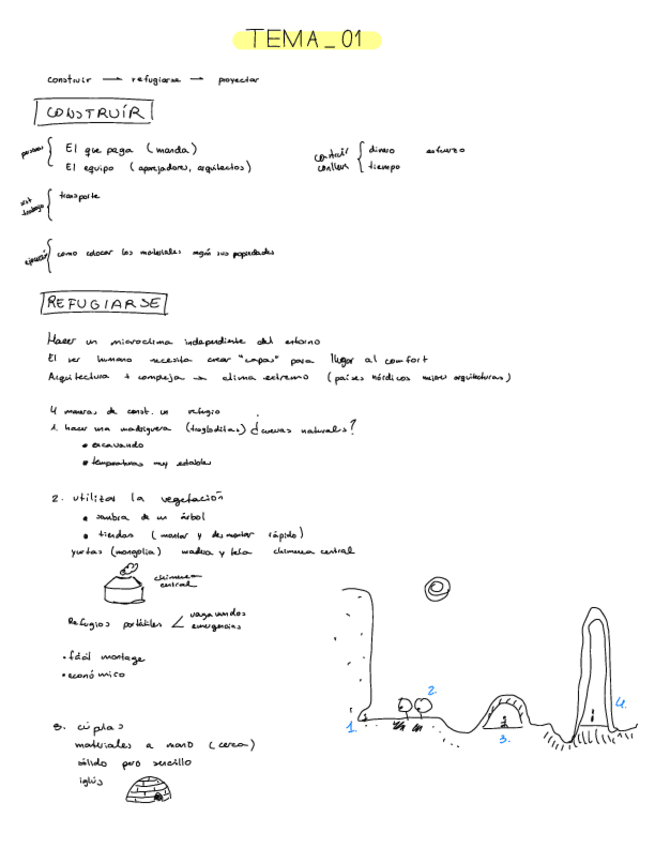 TEMA_01
construir → refugiarse → proyectar
CONSTRUÍR
personas { El que paga (manda)
El equipo (aparejadores, arquitectos)
construir conlleva { dinero esfuerzo
tiempo
trabajo { transporte
ejecución { como colocar los materiales según sus propiedades
REFUGIARSE
Hacer un microclima independiente del entorno
El ser humano necesita crear "capas" para llegar al comfort
Arquitectura + compleja → clima extremo (países nórdicos mejores arquitecturas)
4 maneras de const. un refugio
1. hacer una madriguera (trogloditas) ¿cuevas naturales?
• excavando
• temperaturas muy estables
2. utilizar la vegetación
• sombra de un árbol
• tiendas (montar y desmontar rápido)
yurtas (mongolia) madera y tela chimenea central
chimenea central
Refugios portátiles < vagamundos
emergencias
• fácil montage
• económico
3. cúplas
materiales a mano (cerca)
sólido pero sencillo
iglús
1. 2 3. 4.